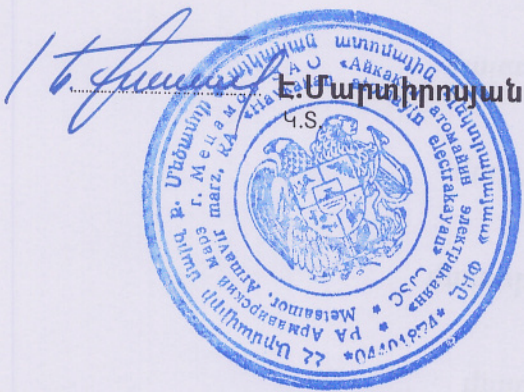 Է.Մարտիրոսյան
Կ.Տ.
ՀՀ Արմավիրի մարզ ք. Մեծամոր «Հայկական ատոմային էլեկտրակայան» ՓԲԸ *04401824*
РА Армавирский марз г. Мецамор ЗАО «Айкакан атомайин электракаян»
Metsamor, Armavir marz, RA «Haykakan atomayin electrakayan» CJSC